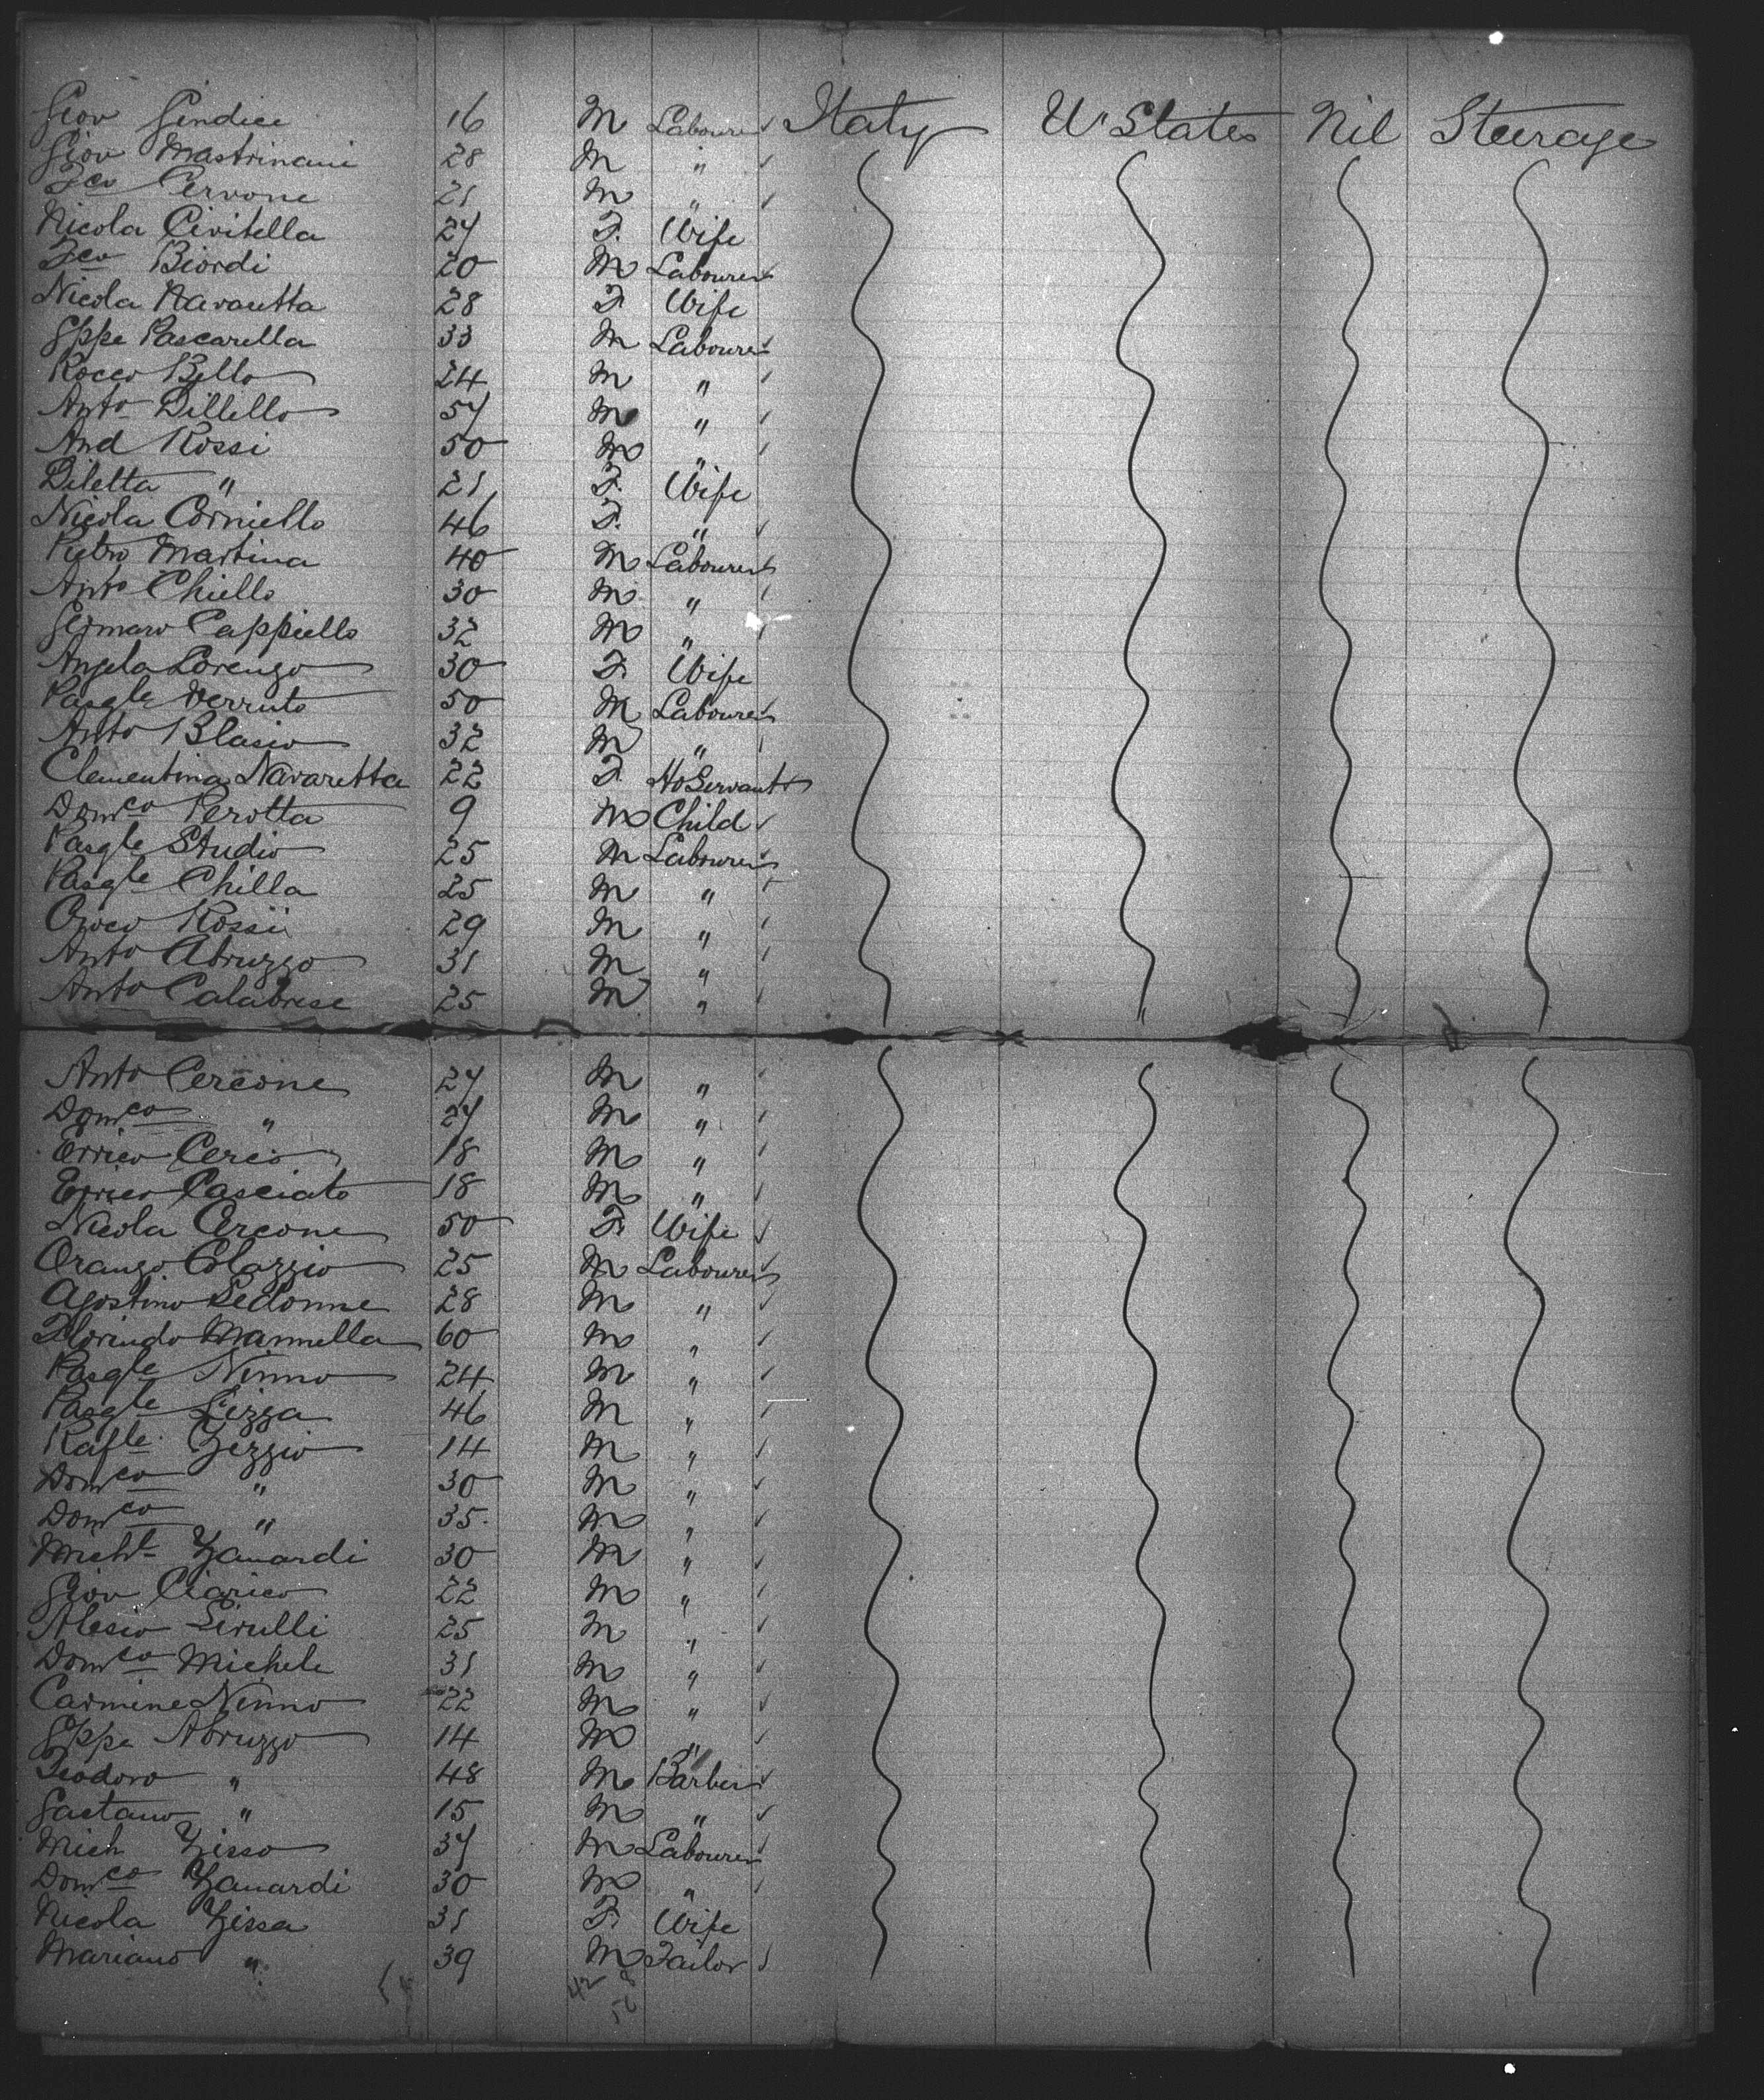 Giov Gindice 16 M Labourer Italy U. States Nil Steerage
Giov Mastrinani 28 M "
Fco Cervone 21 M "
Nicola Civitella 27 F. Wife
Fco Biordi 20 M Labourer
Nicola Navaretta 28 F. Wife
Gppe Pascarella 33 M Labourer
Rocco Bello 24 M "
Anto Dillello 57 M "
And Rossi 50 M "
Diletta " 21 F. Wife
Nicola Corniello 46 F. "
Pietro Martina 40 M Labourer
Anto Chiello 30 M "
Gennaro Cappiello 32 M "
Angela Lorenzo 30 F. Wife
Pasqle Verruto 50 M Labourer
Anto Blasio 32 M "
Clementina Navaretta 22 F. Ho Servant
Domco Perotta 9 M Child
Pasqle Studio 25 M Labourer
Pasqle Chilla 25 M "
Rossi 29 M "
Anto Abruzzo 31 M "
Anto Calabrese 25 M "
Anto Cercone 27 M "
Domco " 27 M "
Errico Cercio 18 M "
Errico Casciato 18 M "
Nicola Cercone 50 F. Wife
Oranzo Colazzio 25 M Labourer
Agostino Ledonne 28 M "
Florindo Mannella 60 M "
Pasqle Ninno 24 M "
Pasqle Lizza 46 M "
Rafle Zezzio 14 M "
Domco " 30 M "
Domco " 35 M "
Michl Zanardi 30 M "
Giov Ciarico 22 M "
Alesio Lirulli 25 M "
Domco Michele 31 M "
Carmine Ninno 22 M "
Gppe Abruzzo 14 M "
Teodoro " 48 M Barber
Gaetano " 15 M "
Mich Zisso 37 M Labourer
Domco Zanardi 30 M "
Nicola Zissa 31 F. Wife
Mariano " 39 M Tailor
42 8